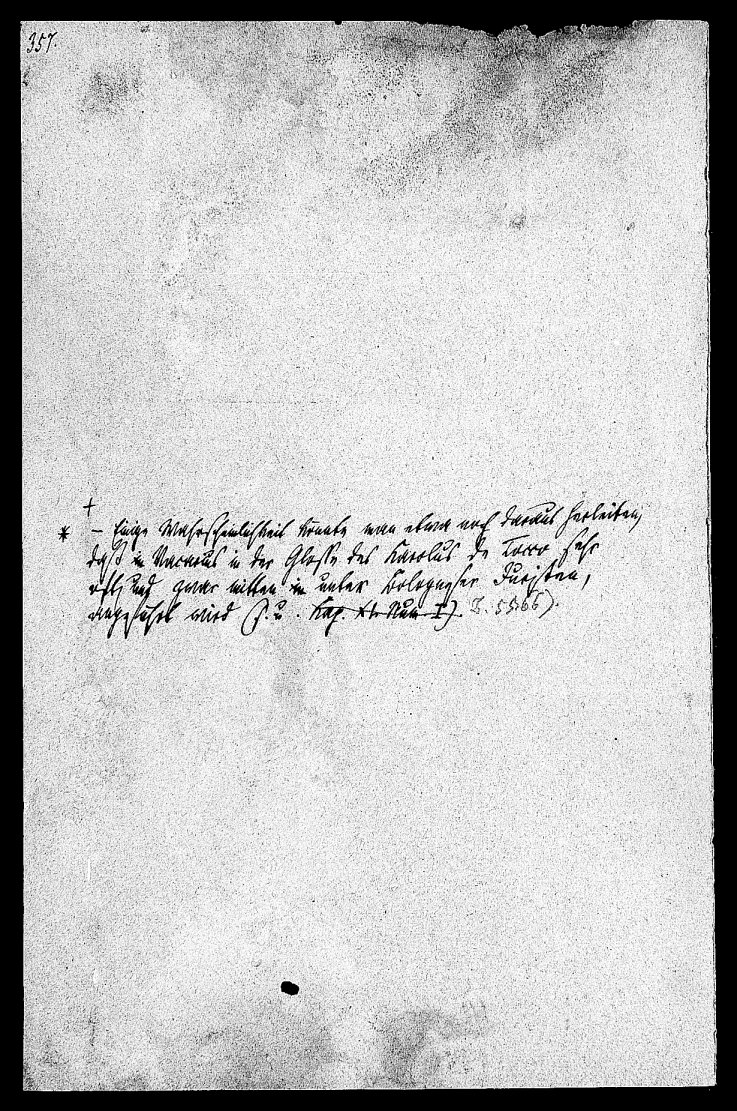 357.
†
* – Einige Wahrscheinlichkeit könnte man etwa noch daraus herleiten,
daß Vacarius in der Glosse des Karolus de Tocco sehr
oft, und zwar mitten unter Bologneser Juristen,
angeführt wird (s. u. Kap. Num I). S. 55.66).